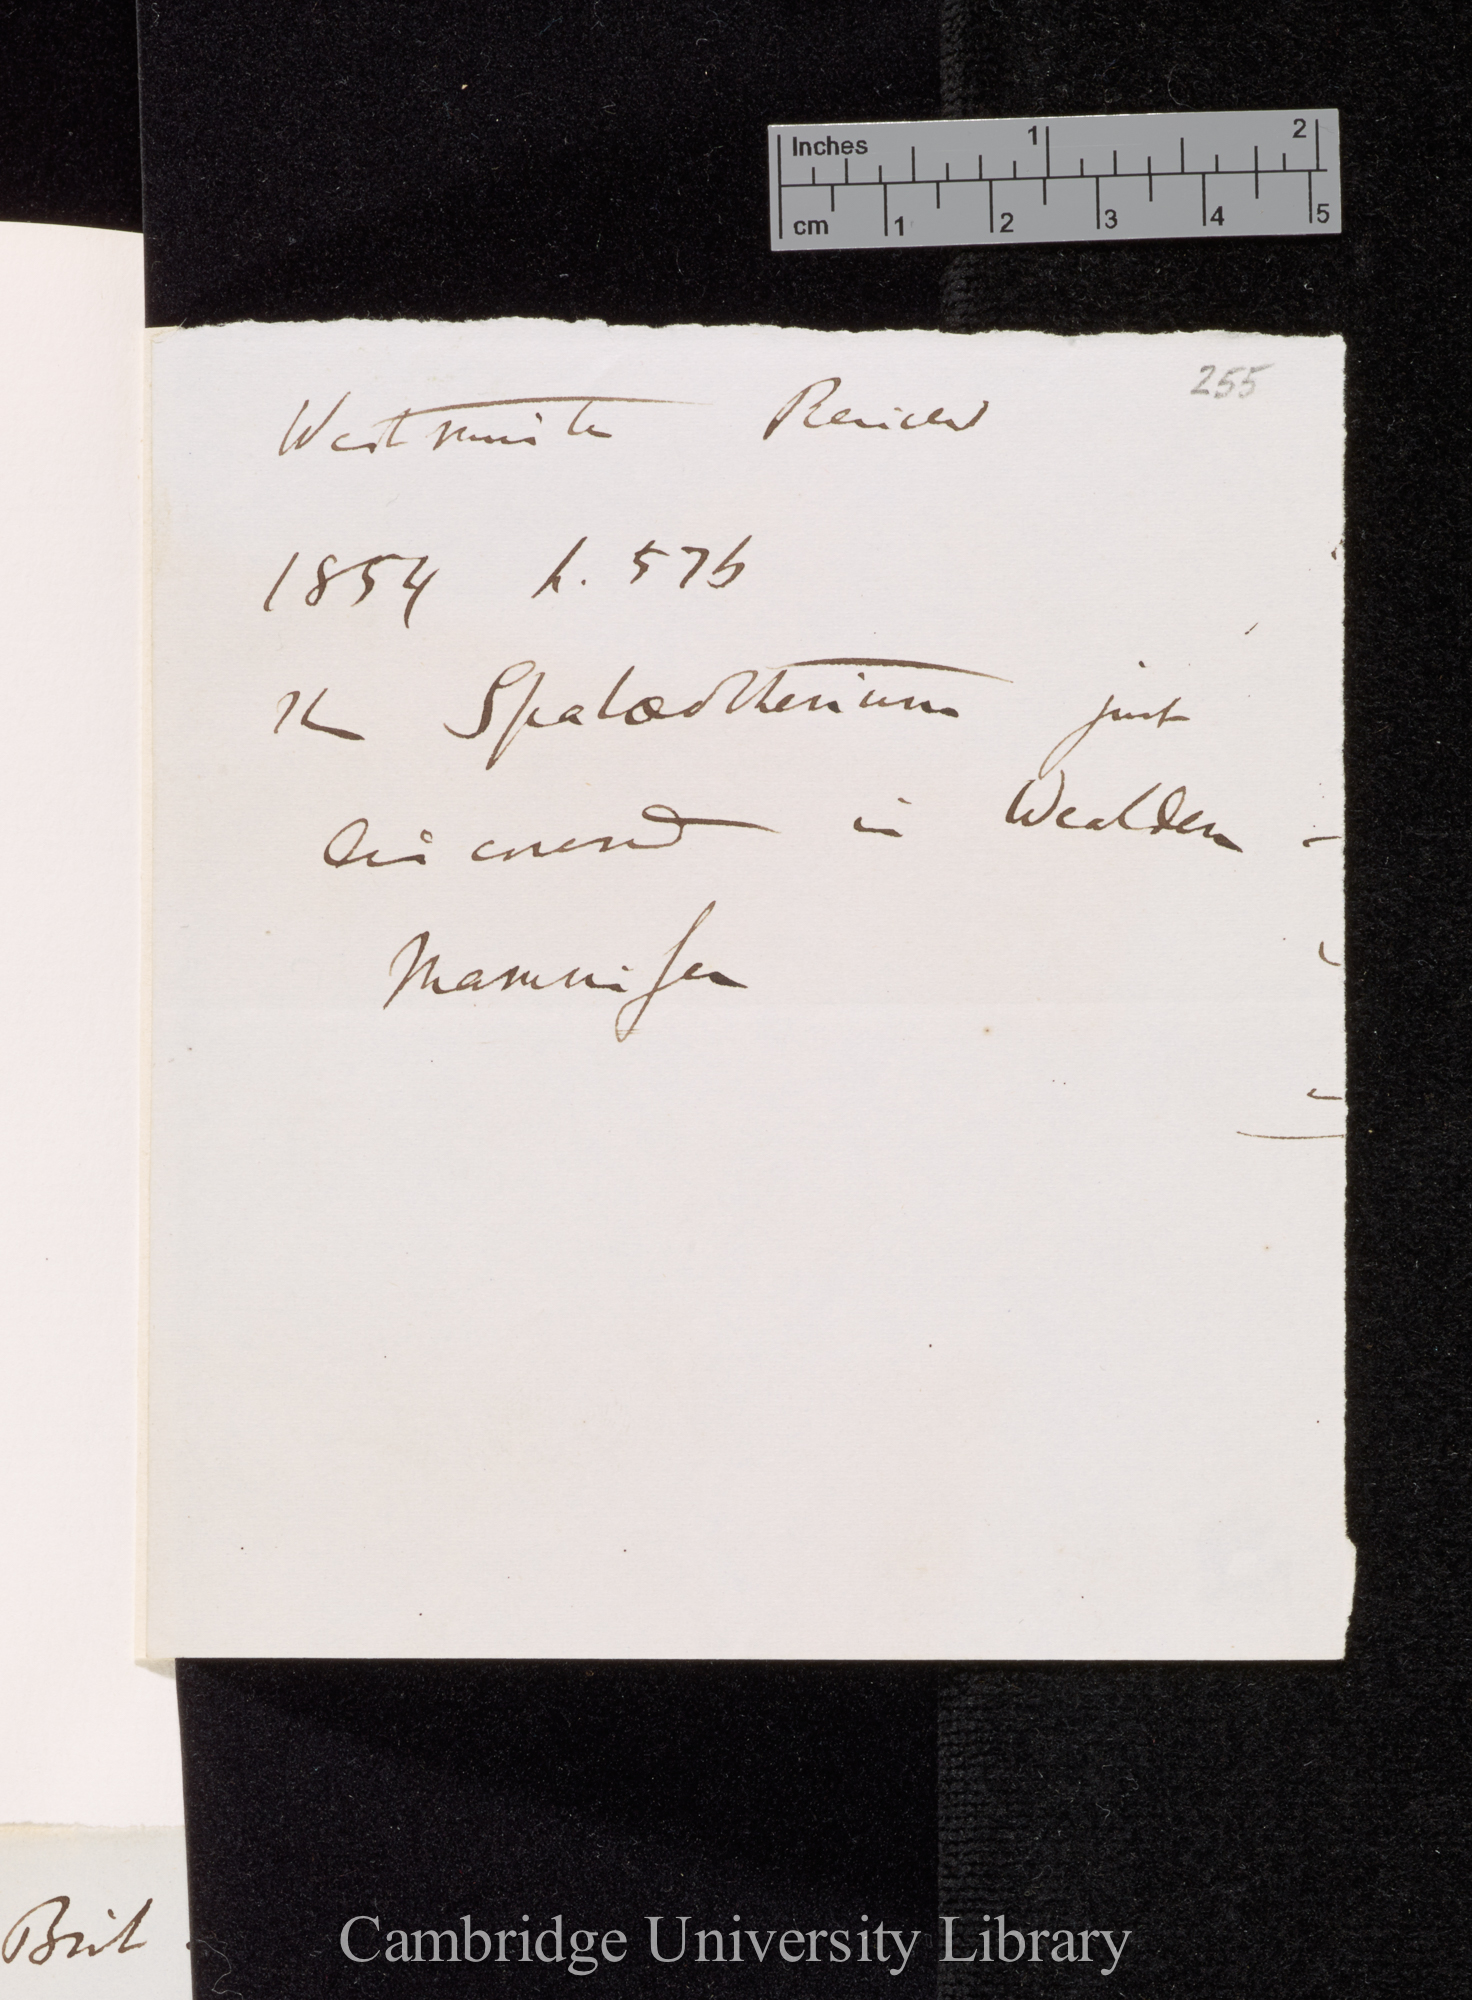 Inches 1 2
cm 1 2 3 4 5
255
Westminster Review
1854 p. 576
The Spalacotherium just
discovered in Wealden
Mammifer
Brit.
Cambridge University Library